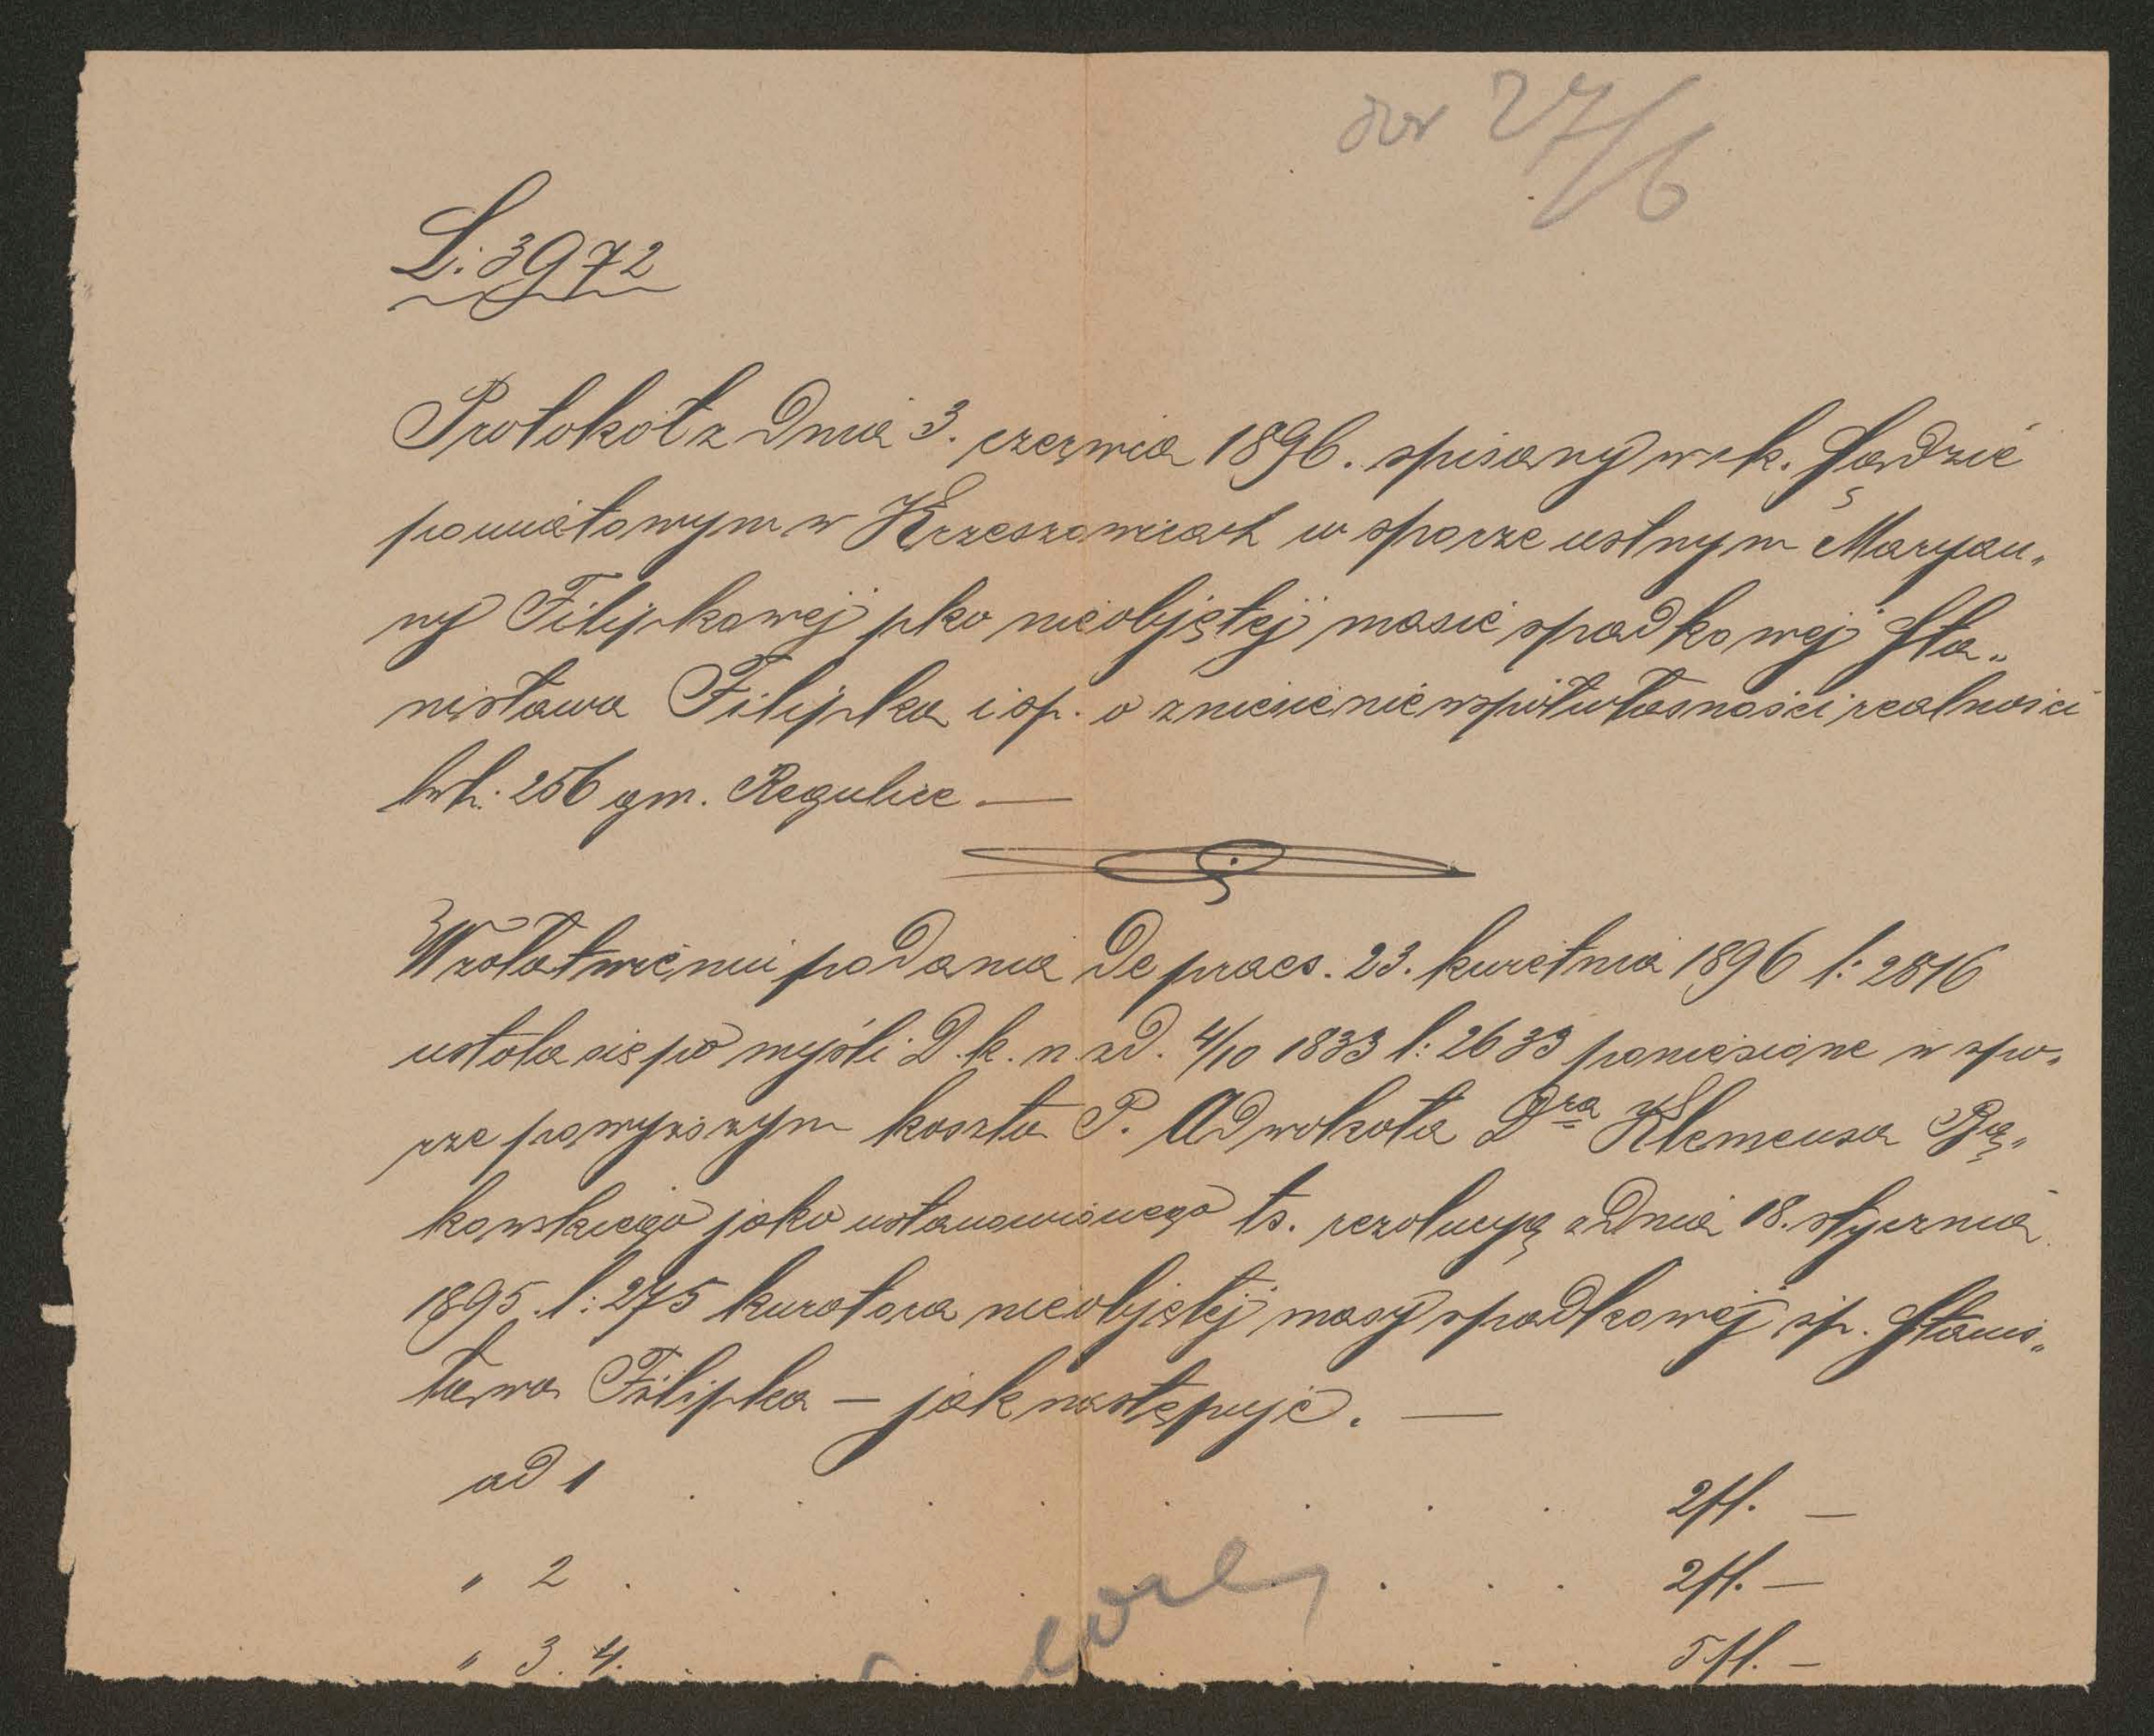 27/6
L: 3972
Protokół z dnia 3. czerwca 1896. spisany w ck. Sądzie
powiatowym w Krzeszowicach w sporze ustnym Maryan„
ny Filipkowej pko nieobjętej masie spadkowej Sta„
nisława Filipka i sp. o zniesienie współwłasności realności
lwh. 256 gm. Regulice —
W załatwieniu podania de praes. 23. kwietnia 1896 l: 2816
ustala się po myśli D. k. n. z d. 4/10 1833 l: 2633 poniesione w spo„
rze powyższym koszta P. Adwokata Dra Klemensa Bą„
kowskiego jako ustanowionego ts. rezolucyą z dnia 18. stycznia
1895 l: 275 kuratora nieobjętej masy spadkowej śp. Stanis„
ława Filipka — jak następuje. —
ad 1 . . . . . . . . 2 fl. —
„ 2 . . . . . . . . 2 fl. —
„ 3. 4. . . . . . . . 5 fl. —